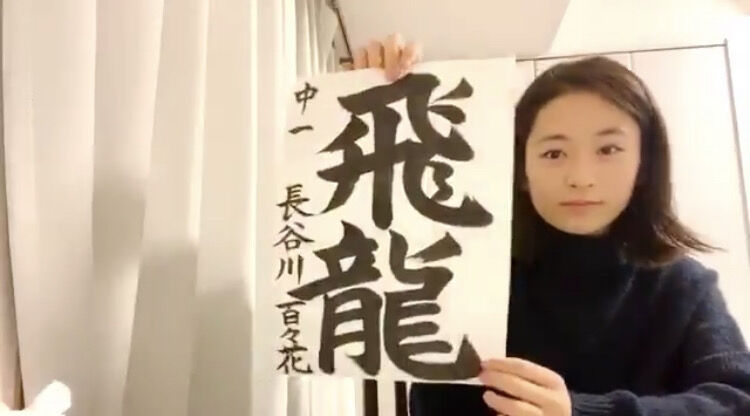 飛龍
中一 長谷川 百々花